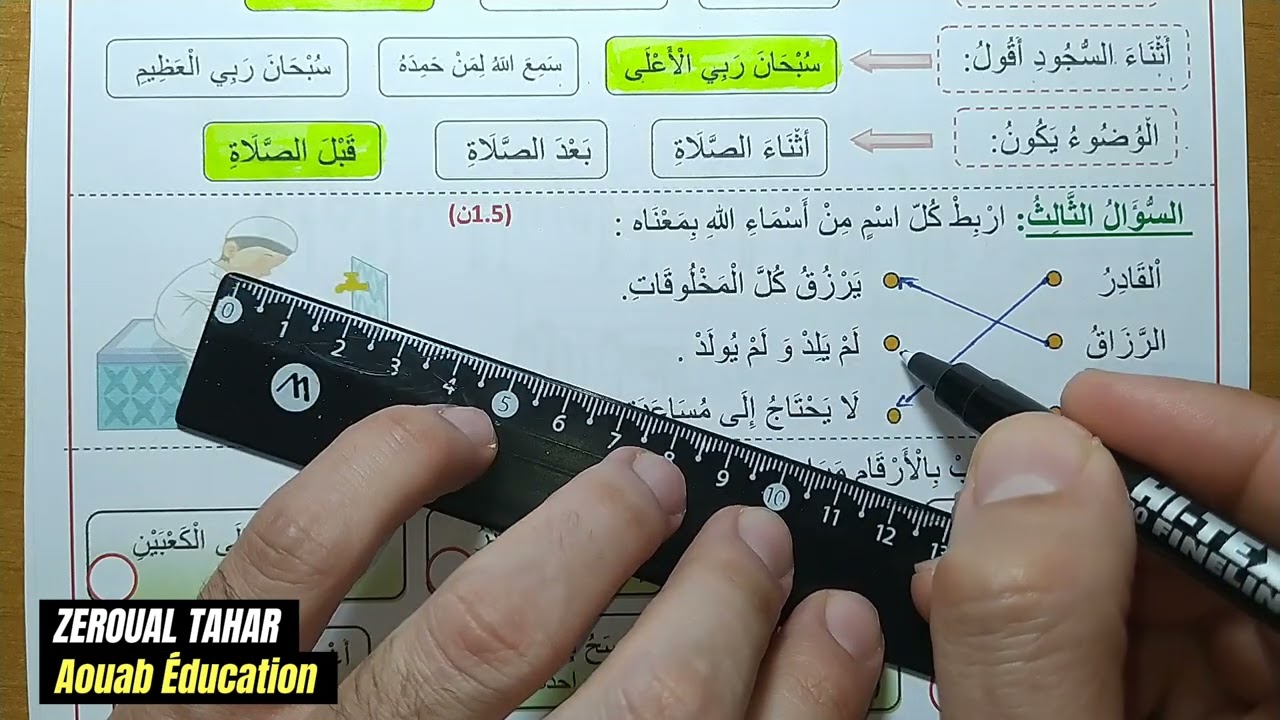 أَثْنَاءَ السُّجُودِ أَقُولُ: سُبْحَانَ رَبِي الْأَعْلَى سَمِعَ اللهُ لِمَنْ حَمِدَهُ سُبْحَانَ رَبِي الْعَظِيمِ
الْوُضُوءُ يَكُونُ: أَثْنَاءَ الصَّلَاةِ بَعْدَ الصَّلَاةِ قَبْلَ الصَّلَاةِ
السُّؤَالُ الثَّالِثُ: ارْبِطْ كُلّ اسْمٍ مِنْ أَسْمَاءِ اللهِ بِمَعْنَاه : (1.5ن)
اْلقَادِرُ يَرْزُقُ كُلَّ الْمَخْلُوقَاتِ.
الرَّزَاقُ لَمْ يَلِدْ وَ لَمْ يُولَدْ .
لَا يَحْتَاجُ إِلَى
بِالْأَرْقَامِ
الْكَعْبَيْنِ
0 1 2 3 4 5 6 7 8 9 10 11 12 13
HI-TEX
FINELIN
ZEROUAL TAHAR
Aouab Éducation